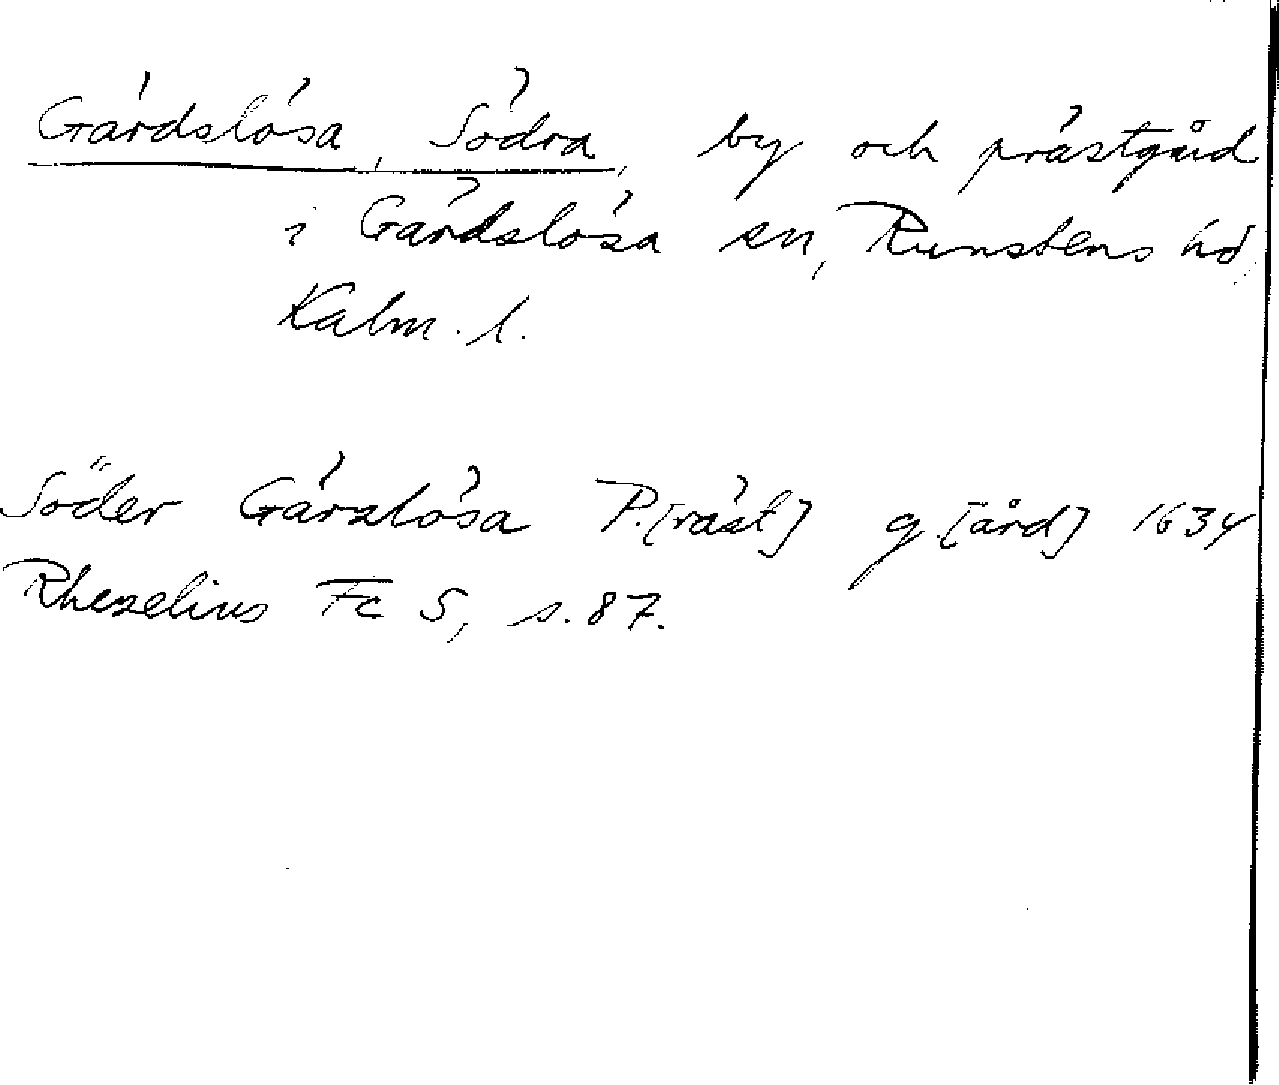 Gärdslösa, Södra, by och prästgård
i Gärdslösa sn, Runstens hd,
Kalm. l.
Söder Gärslösa P.[räst] g.[ård] 1634
Rhezelius Fc 5, s. 87.